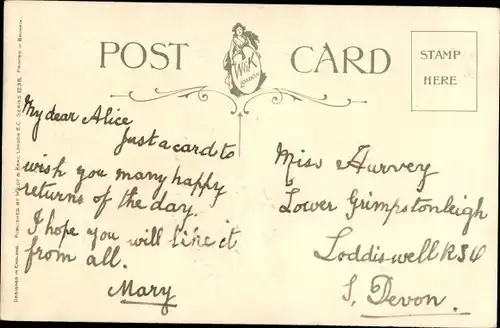 POST CARD
W&K
LONDON
STAMP
HERE
DESIGNED IN ENGLAND. PUBLISHED BY WILDT & KRAY, LONDON E.C. SERIES 1236. PRINTED IN BAVARIA.
My dear Alice
Just a card to
wish you many happy
returns of the day.
I hope you will like it
from all.
Mary
Miss Hurvey
Lower Grimpstonleigh
Loddiswell RSO
S. Devon.